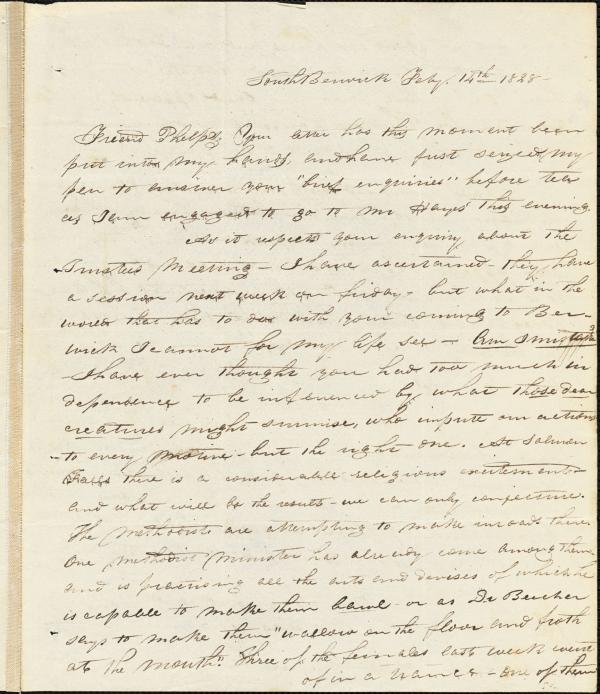 South Berwick Feby. 14th 1828-
Friend Phelps, Your letter has this moment been
put into my hands, and have just seized my
pen to answer your "brief enquiries" before tea
as I am engaged to go to Mr Hayes' this evening.
As it respects your enquiry about the
Trustees Meeting - I have ascertained - they have
a session next week on friday - but what in the
world that has to do with your coming to Ber-
wick I cannot for my life see - Am I mistaken?
- I have ever thought you had too much in
dependence to be influenced by what those dear
creatures might surmise, who impute our actions
to every motive - but the right one. At Salmon
Falls there is a considerable religious excitement -
and what will be the results - we can only conjecture.
The Methodists are attempting to make inroads there
One methodist minister has already come among them
and is practising all the arts and devises of which he
is capable to make them bawl - or as Dr Beecher
says to make them "wallow on the floor and froth
at the mouth." Three of the females last week went
off in a trance - one of them